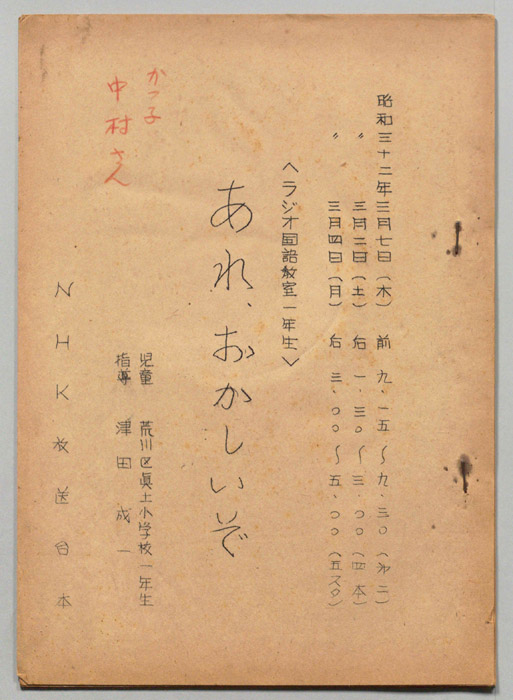 昭和三十二年三月七日(木) 前 九.一五〜九.三〇(第二)
〃 三月二日(土) 后 一.三〇〜三.〇〇(四本)
〃 三月四日(月) 后 三.〇〇〜五.〇〇(五スタ)
<ラジオ国語教室一年生>
あれ、おかしいぞ
児童 荒川区真土小学校一年生
指導 津田成一
かつ子
中村さん
NHK放送台本